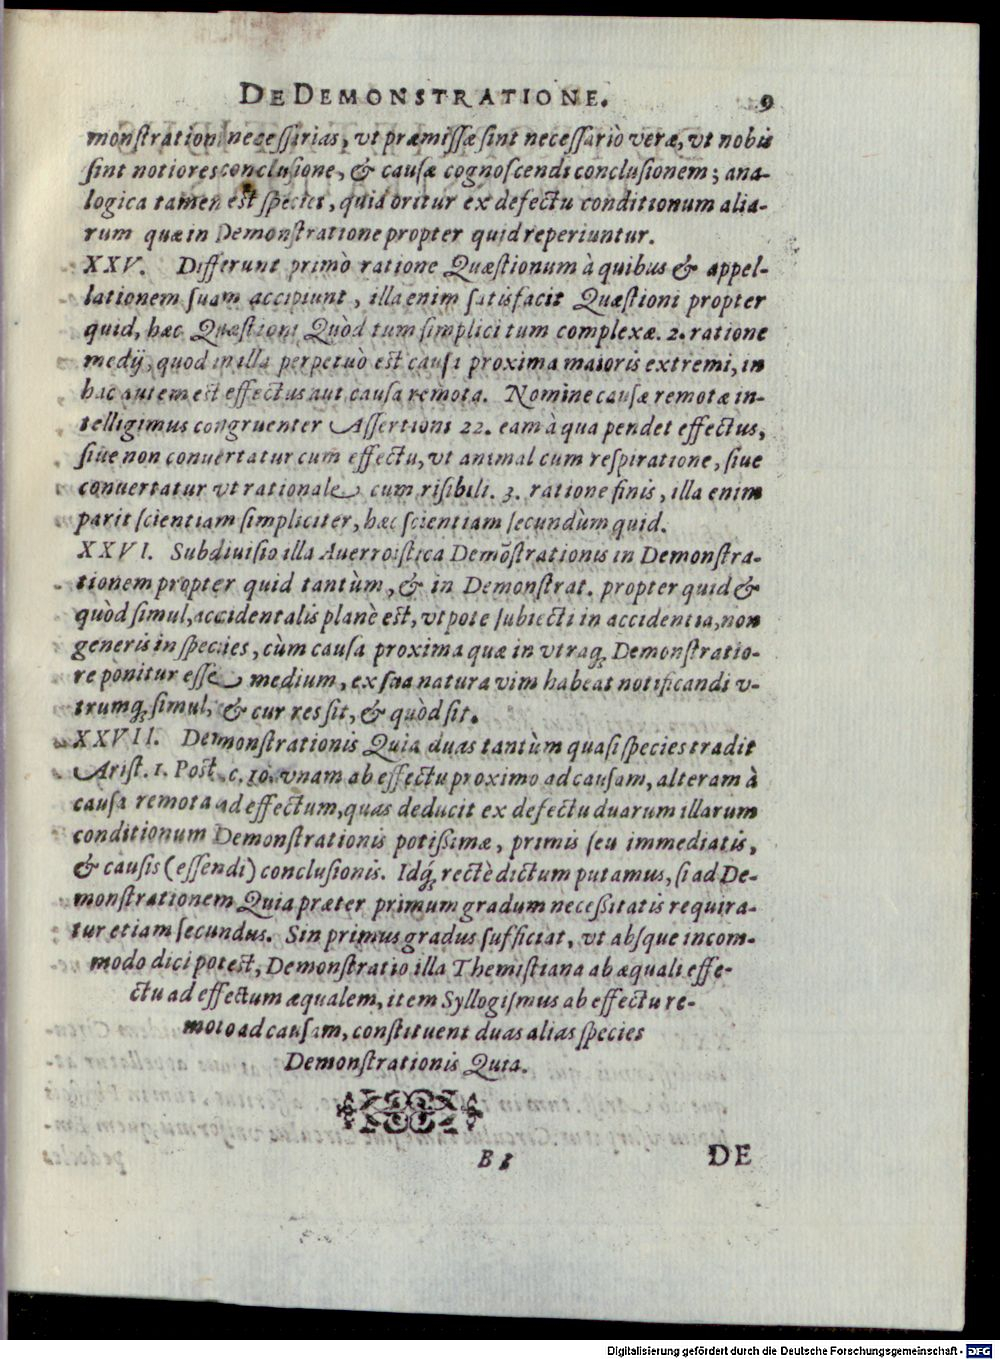 DE DEMONSTRATIONE. 9
monstration necessirias, vt præmissæ sint necessariò veræ, vt nobis
sint notiores conclusione, & causæ cognoscendi conclusionem; ana-
logica tamen est species, quia oritur ex defectu conditionum alia-
rum quæ in Demonstratione propter quid reperiuntur.
XXV. Differunt primò ratione Quæstionum à quibus & appel-
lationem suam accipiunt, illa enim satisfacit Quæstioni propter
quid, hæc Quæstioni Quòd tum simplici tum complexæ. 2. ratione
medij, quod in illa perpetuò est causa proxima maioris extremi, in
hac autem est effectus aut causa remota. Nomine causæ remotæ in-
telligimus congruenter Assertioni 22. eam à qua pendet effectus,
siue non conuertatur cum effectu, vt animal cum respiratione, siue
conuertatur vt rationale cum risibili. 3. ratione finis, illa enim
parit scientiam simpliciter, hæc scientiam secundùm quid.
XXVI. Subdiuisio illa Auerroistica Demõstrationis in Demonstra-
tionem propter quid tantùm, & in Demonstrat. propter quid &
quòd simul, accidentalis planè est, vtpote subiecti in accidentia, non
generis in species, cùm causa proxima quæ in vtraq; Demonstratio-
re ponitur esse medium, ex sua natura vim habeat notificandi v-
trumq; simul, & cur res sit, & quòd sit.
XXVII. Demonstrationis Quia duas tantùm quasi species tradit
Arist. 1. Post. c. 10. vnam ab effectu proximo ad causam, alteram à
causa remota ad effectum, quas deducit ex defectu duarum illarum
conditionum Demonstrationis potissimæ, primis seu immediatis,
& causis (essendi) conclusionis. Idq; rectè dictum putamus, si ad De-
monstrationem Quia præter primum gradum necessitatis requira-
tur etiam secundus. Sin primus gradus sufficiat, vt absque incom-
modo dici potest, Demonstratio illa Themistiana ab æquali effe-
ctu ad effectum æqualem, item Syllogismus ab effectu re-
moto ad causam, constituent duas alias species
Demonstrationis Quia.
DE
Digitalisierung gefördert durch die Deutsche Forschungsgemeinschaft - DFG